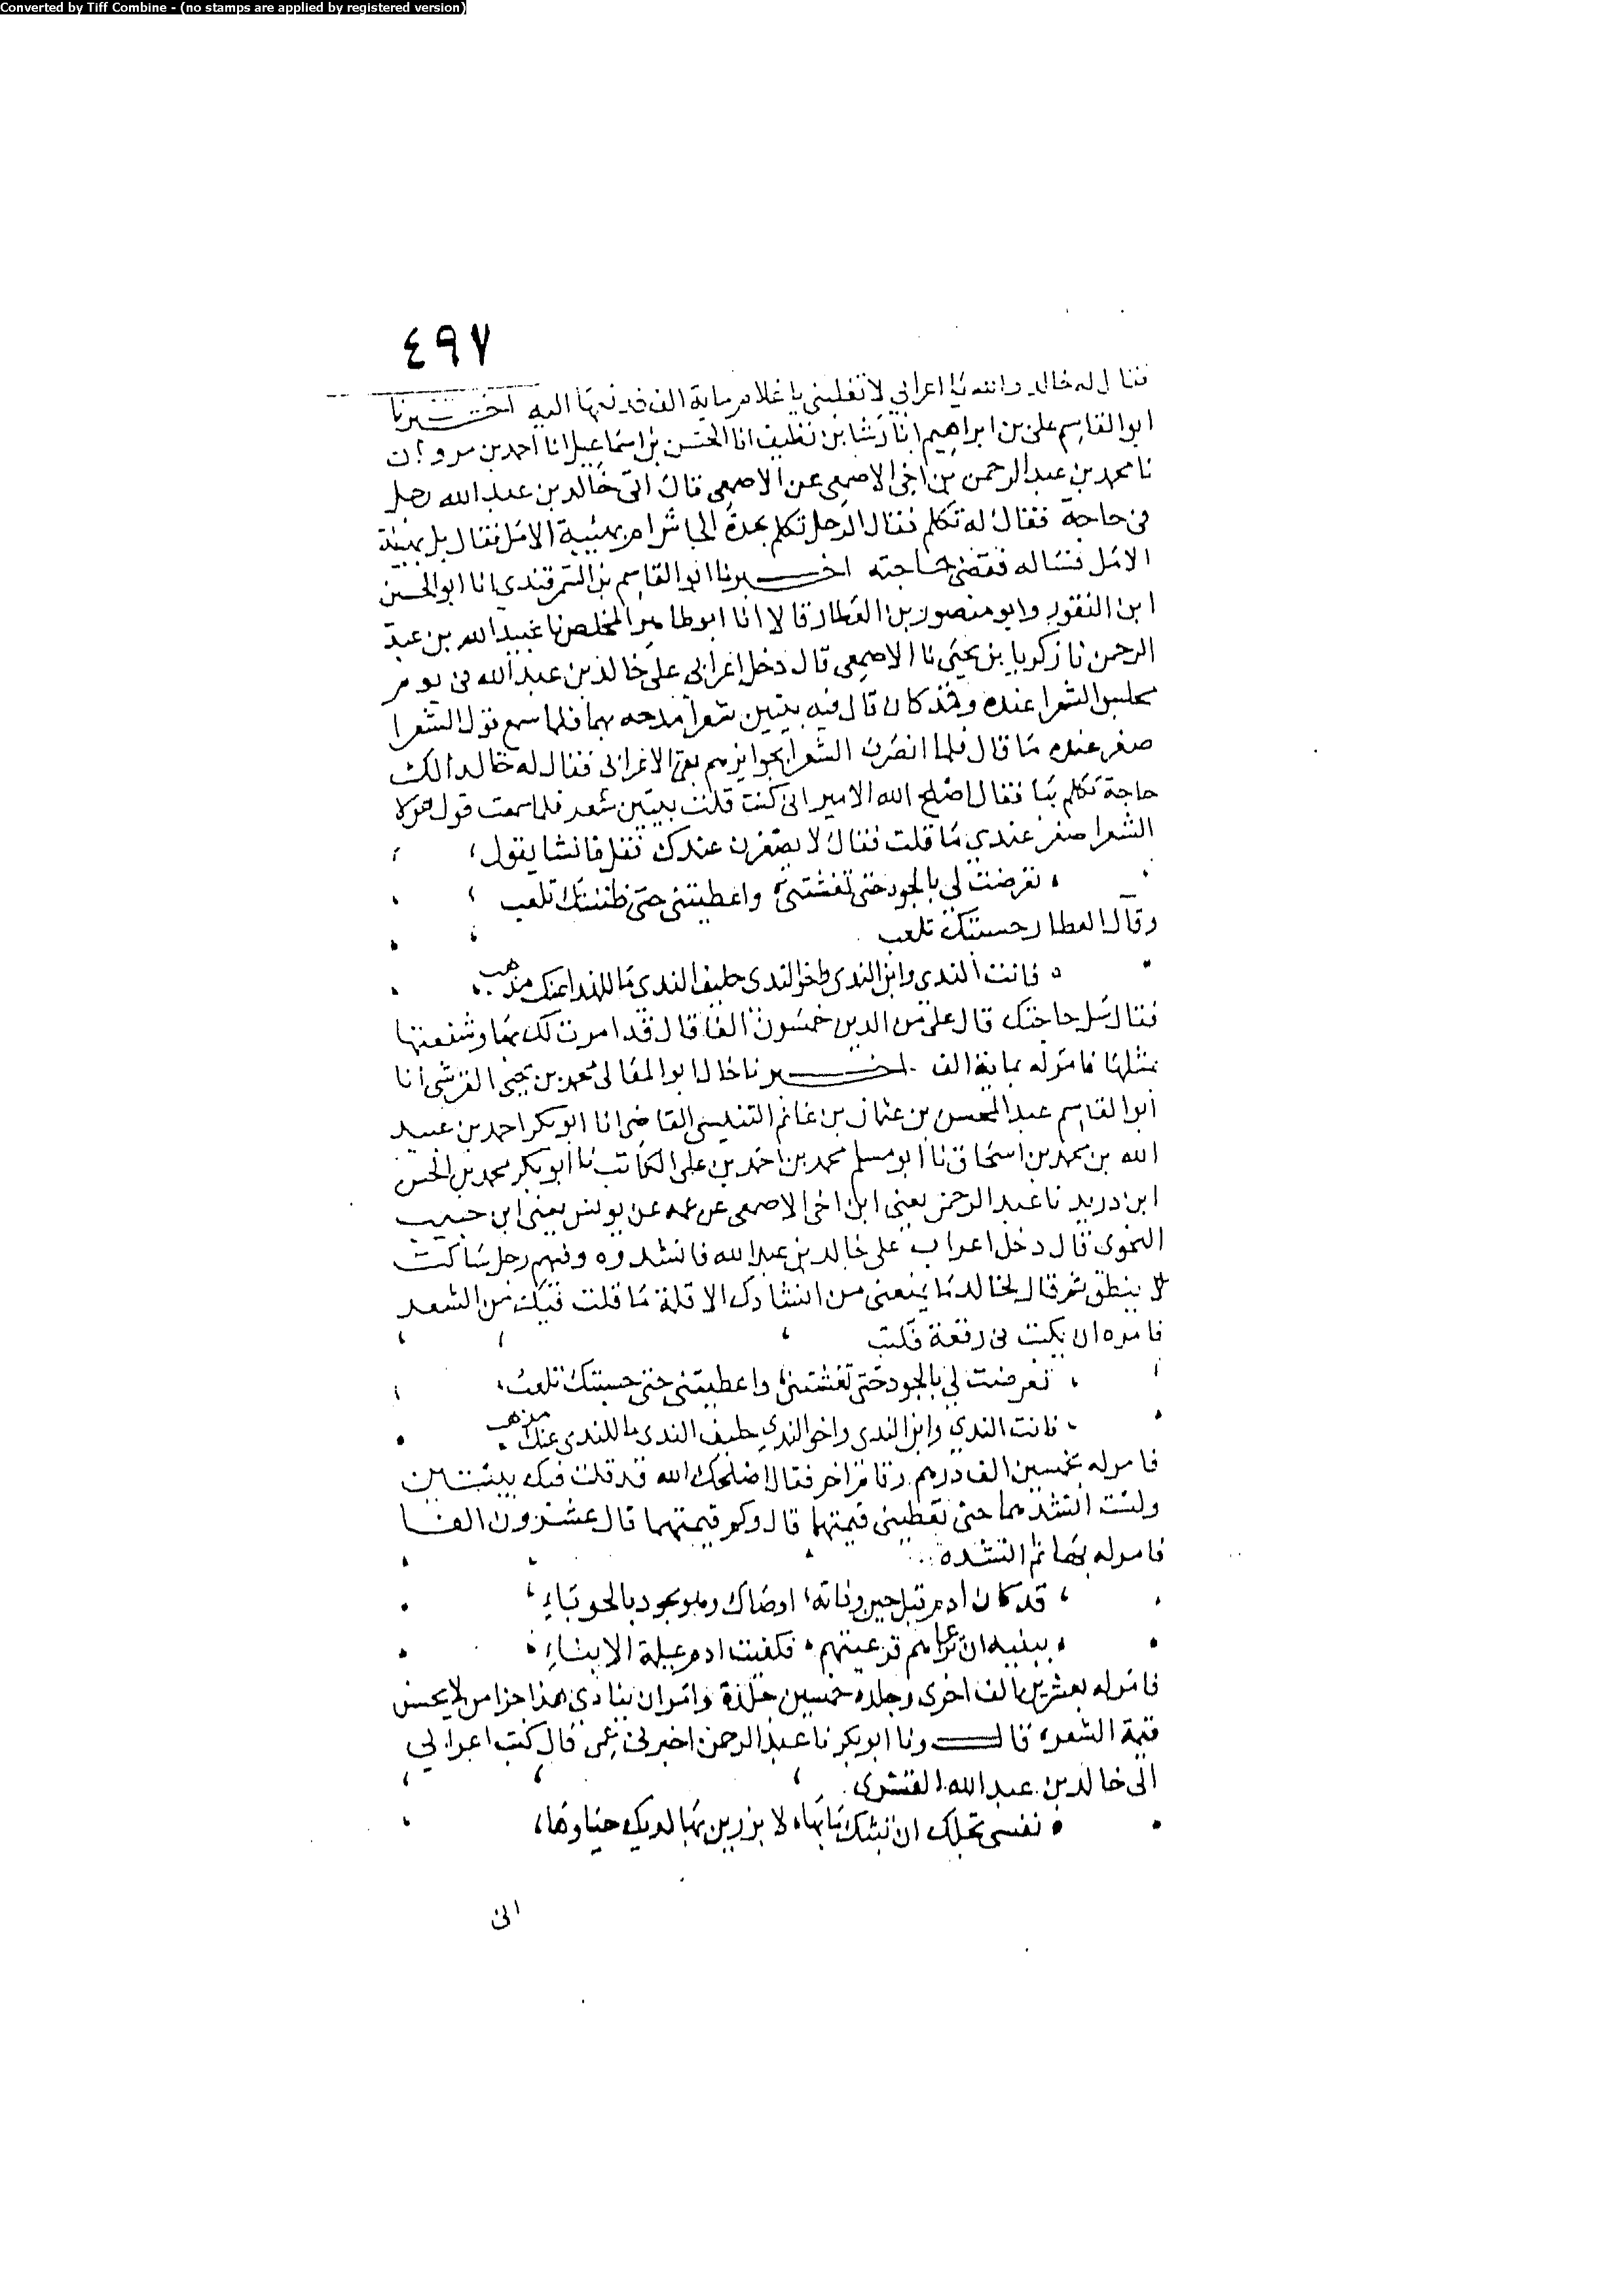 Converted by Tiff Combine - (no stamps are applied by registered version)
٤٩٧
فقال له خالد والله يا اعرابي لا تغلبني يا غلام مايه الف فدفعها اليه اخبرنا
ابو القاسم علي بن ابراهيم انا رشا بن نظيف انا الحسن بن اسماعيل انا احمد بن مروان
نا محمد بن عبد الرحمن بن اخي الاصمعي عن الاصمعي قال اتى خالد بن عبد الله رجل
في حاجة فقال له تكلم فقال الرجل اتكلم بجرة الياس ام بهيبة الامل فقال بل بهيبة
الامل فساله فقضى حاجته اخبرنا ابو القاسم بن السمرقندي انا ابو الحسين
ابن النقور وابو منصور بن العطار قالا انا ابو طاهر المخلص نا عبيد الله بن عبد
الرحمن نا زكريا بن يحيى نا الاصمعي قال دخل اعرابي على خالد بن عبد الله في يوم
مجلس الشعرا عنده وقد كان قال فيه بيتين شعرا مدحه بهما فلما سمع قول الشعرا
صغر عنده ما قال فلما انصرف الشعرا بجوايزهم بقي الاعرابي فقال له خالد الك
حاجة تكلم بها فقال اصلح الله الامير اني كنت قلت بيتين شعر فلما سمعت قول هولا
الشعرا صغر عندي ما قلت فقال لا يصغرن عندك فقل فانشا يقول
تعرضت لي بالجود حتى نعشتني واعطيتني حتى ظننتك تلعب
وقال العطار حسبتك تلعب
فانت الندى وابن الندى واخو الندى حليف الندى ما للندا عنك مذهب
فقال سل حاجتك قال علي من الدين خمسون الفا قال قد امرت لك بها وشفعتها
بمثلها فامر له بماية الف اخبرنا خالي ابو المعالي محمد بن يحيى القرشي انا
ابو القاسم عبد المحسن بن عثمان بن غانم التنيسي القاضي انا ابو بكر احمد بن عبيد
الله بن محمد بن اسحاق نا ابو مسلم محمد بن احمد بن علي الكاتب نا ابو بكر محمد بن الحسن
ابن دريد نا عبد الرحمن يعني ابن اخي الاصمعي عن عمه عن يونس يعني ابن حبيب
النحوى قال دخل اعراب على خالد بن عبد الله فانشدوه وفيهم رجل ساكت
لا ينطق ثم قال لخالد ما يمنعني من انشادك الا قلة ما قلت فيك من الشعر
فامره ان يكتب في رقعة فكتب
تعرضت لي بالجود حتى نعشتني واعطيتني حتى حسبتك تلعب
فانت الندي وابن الندي واخو الندي حليف الندى ما للندى عنك مذهب
فامر له بخمسين الف درهم وقام اخر فقال اصلحك الله قد قلت فيك بيتين
ولست انشدهما حتى تعطيني قيمتهما قال وكم قيمتهما قال عشرون الفا
فامر له بها ثم انشده
قد كان ادم قبل حين وفاته اوصاك وهو يجود بالحوباء
ببنيه ان ترعاهم فرعيتهم فكفيت ادم عيلة الابناء
فامر له بعشرين الف اخرى وجلده خمسين جلدة وامر ان ينادي هذا جزا من لا يحسن
قيمة الشعر قال ونا ابو بكر نا عبد الرحمن اخبرني عمي قال كتب اعرابي
الى خالد بن عبد الله القشري
نفسي تجلك ان تبثك ما بها لا يزرين بها لديك حياوها
الى